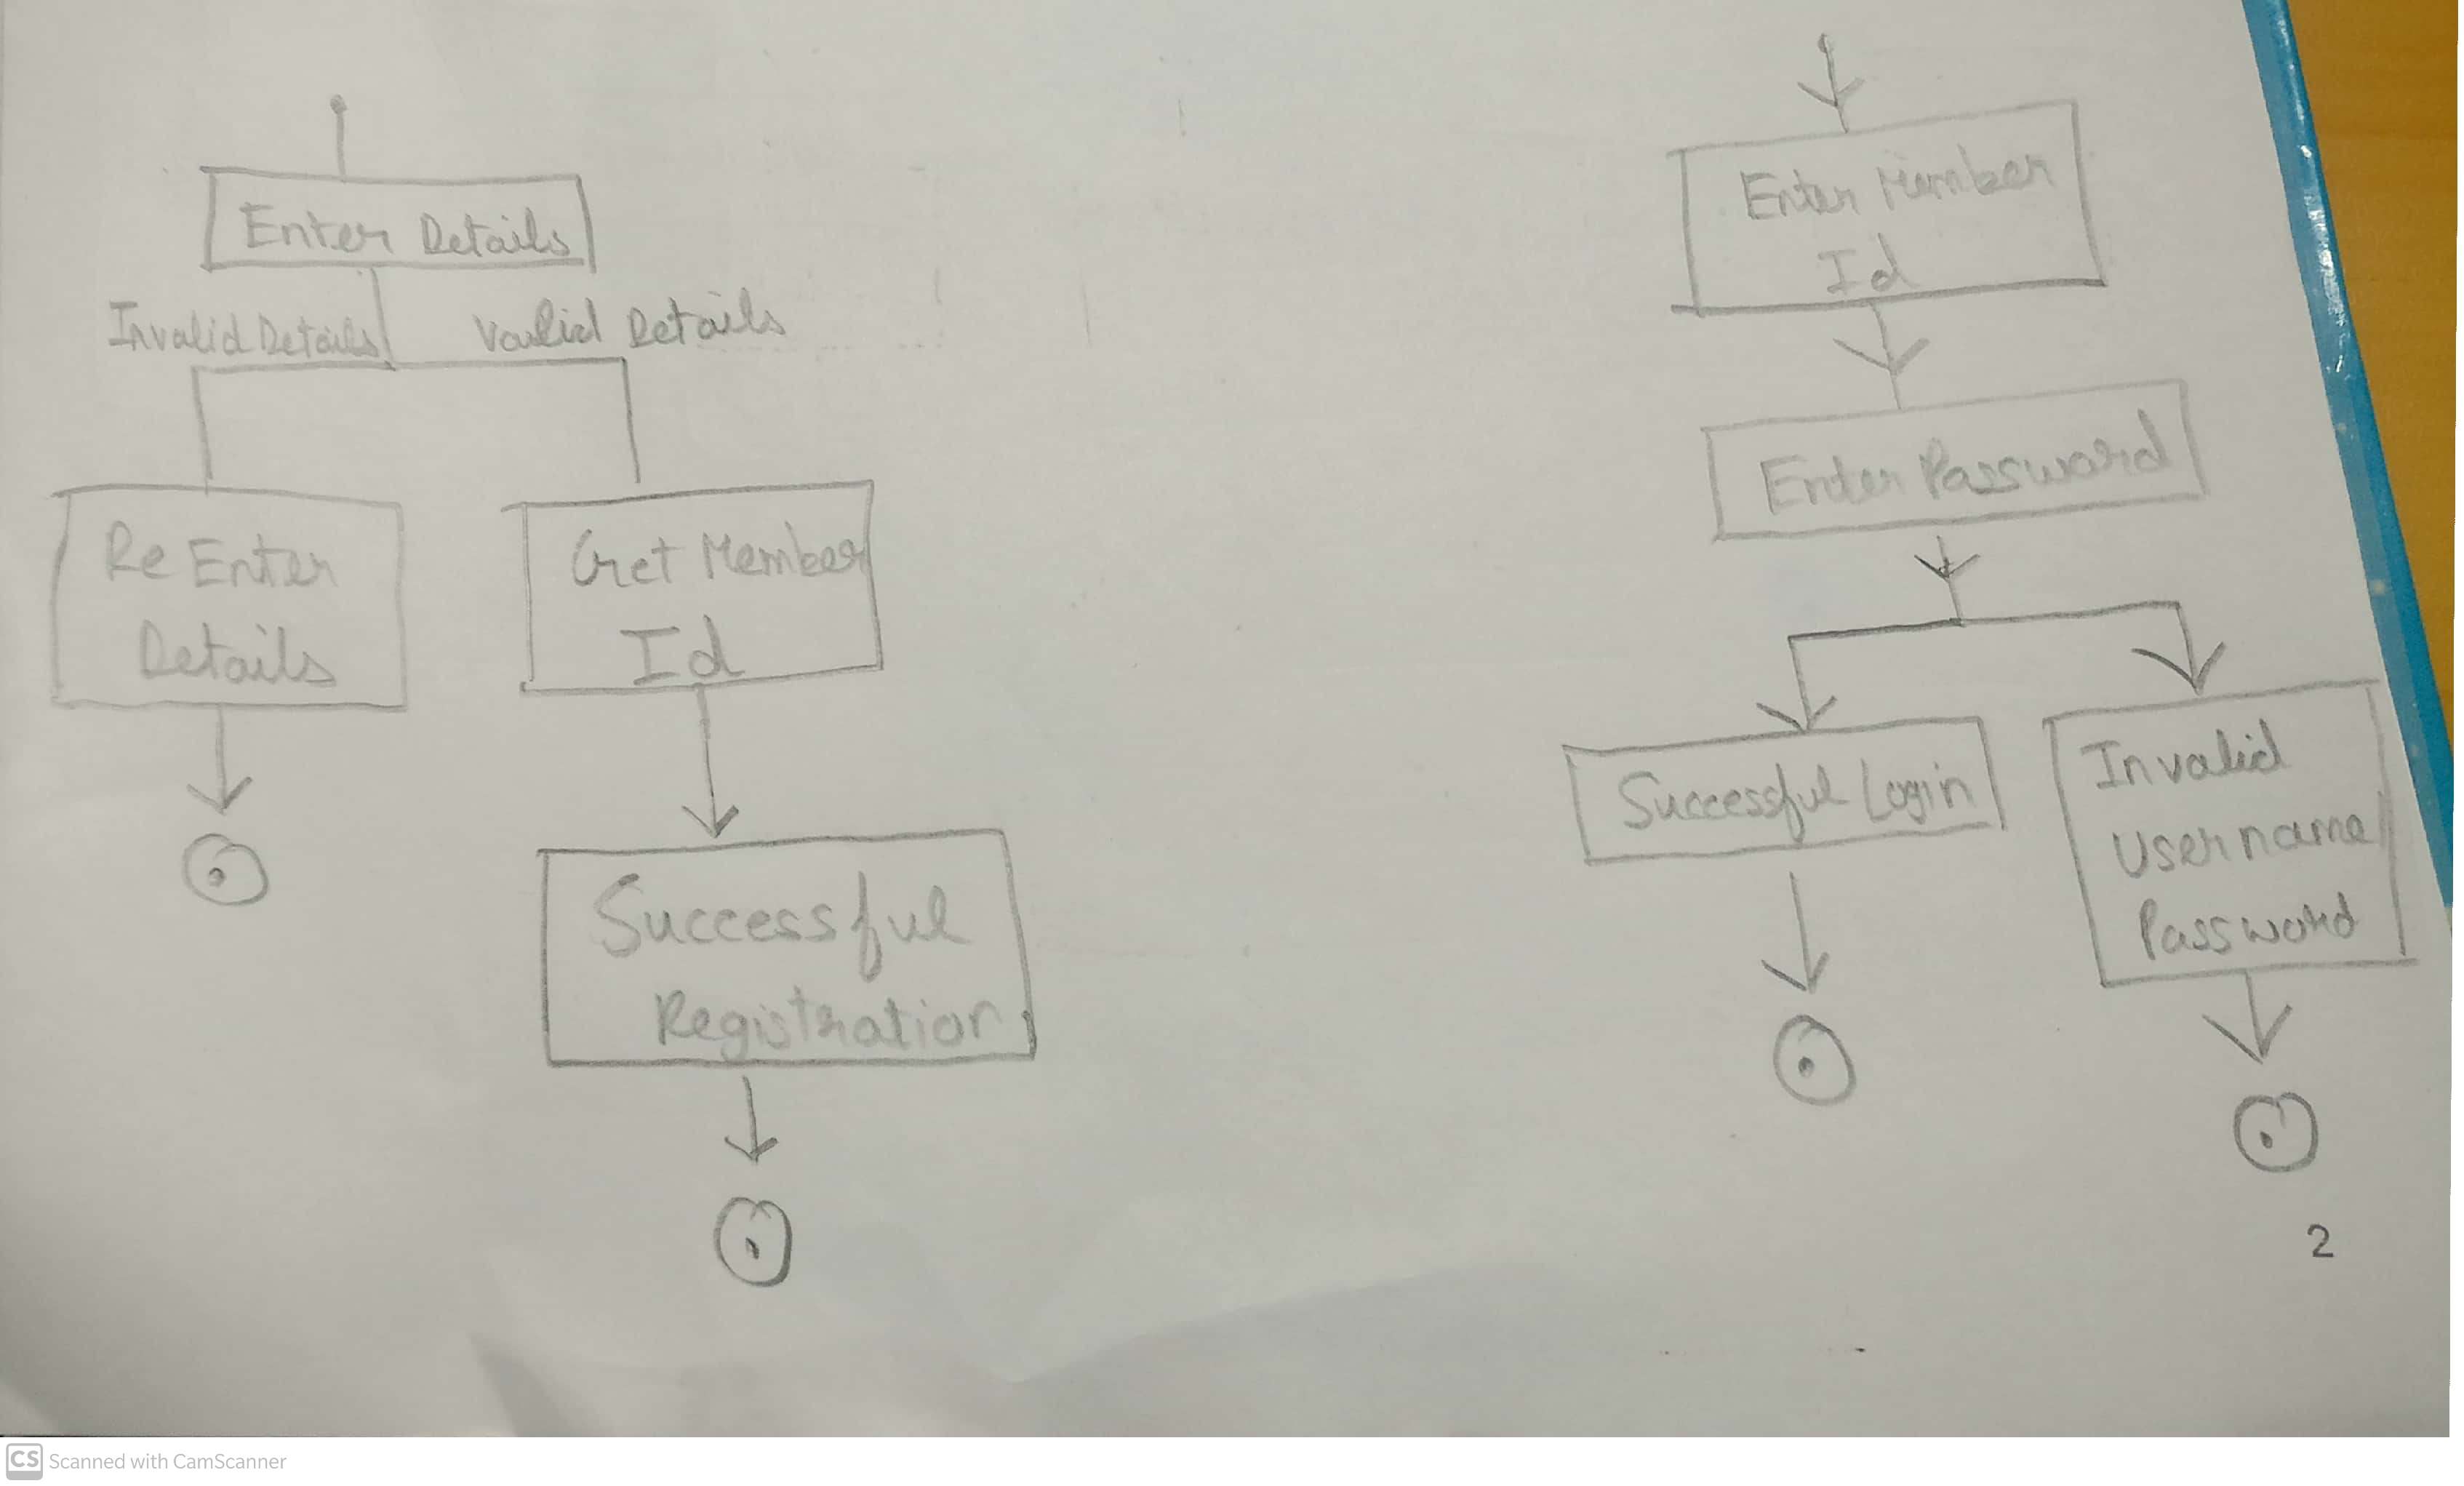 Enter Details
Invalid Details
Valid Details
Re Enter
Details
Get Member
Id
Successful
Registration
Enter Member
Id
Enter Password
Successful Login
Invalid
Username
Password
2
CS Scanned with CamScanner